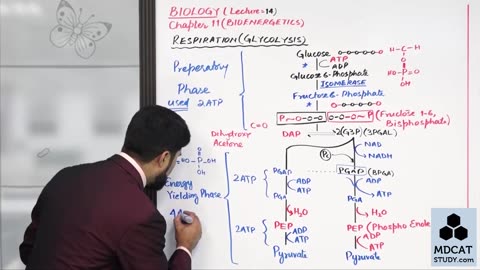 BIOLOGY (Lecture-14)
Chapter 11 (BIOENERGETICS)
RESPIRATION (GLYCOLYSIS)
Preperatory
Phase
used 2ATP
Glucose
ATP
ADP
Glucose 6-Phosphate
ISOMERASE
Fructose 6-Phosphate
P P (Fructose 1-6,
Bisphosphate)
H-C-H
O
HO-P=O
OH
C=O
Dihydroxy
Acetone
DAP
2(G3P) (3PGAL)
Pi
NAD
NADH
PGAP (BPGA)
O
HO-P-OH
OH
Energy
Yielding Phase
4A
2ATP
ADP
ATP
ADP
ATP
PGA
PGA
H2O
H2O
2ATP
PEP
PEP (Phospho Enole
ADP
ATP
ADP
ATP
Pyruvate
Pyruvate
MDCAT
STUDY.com